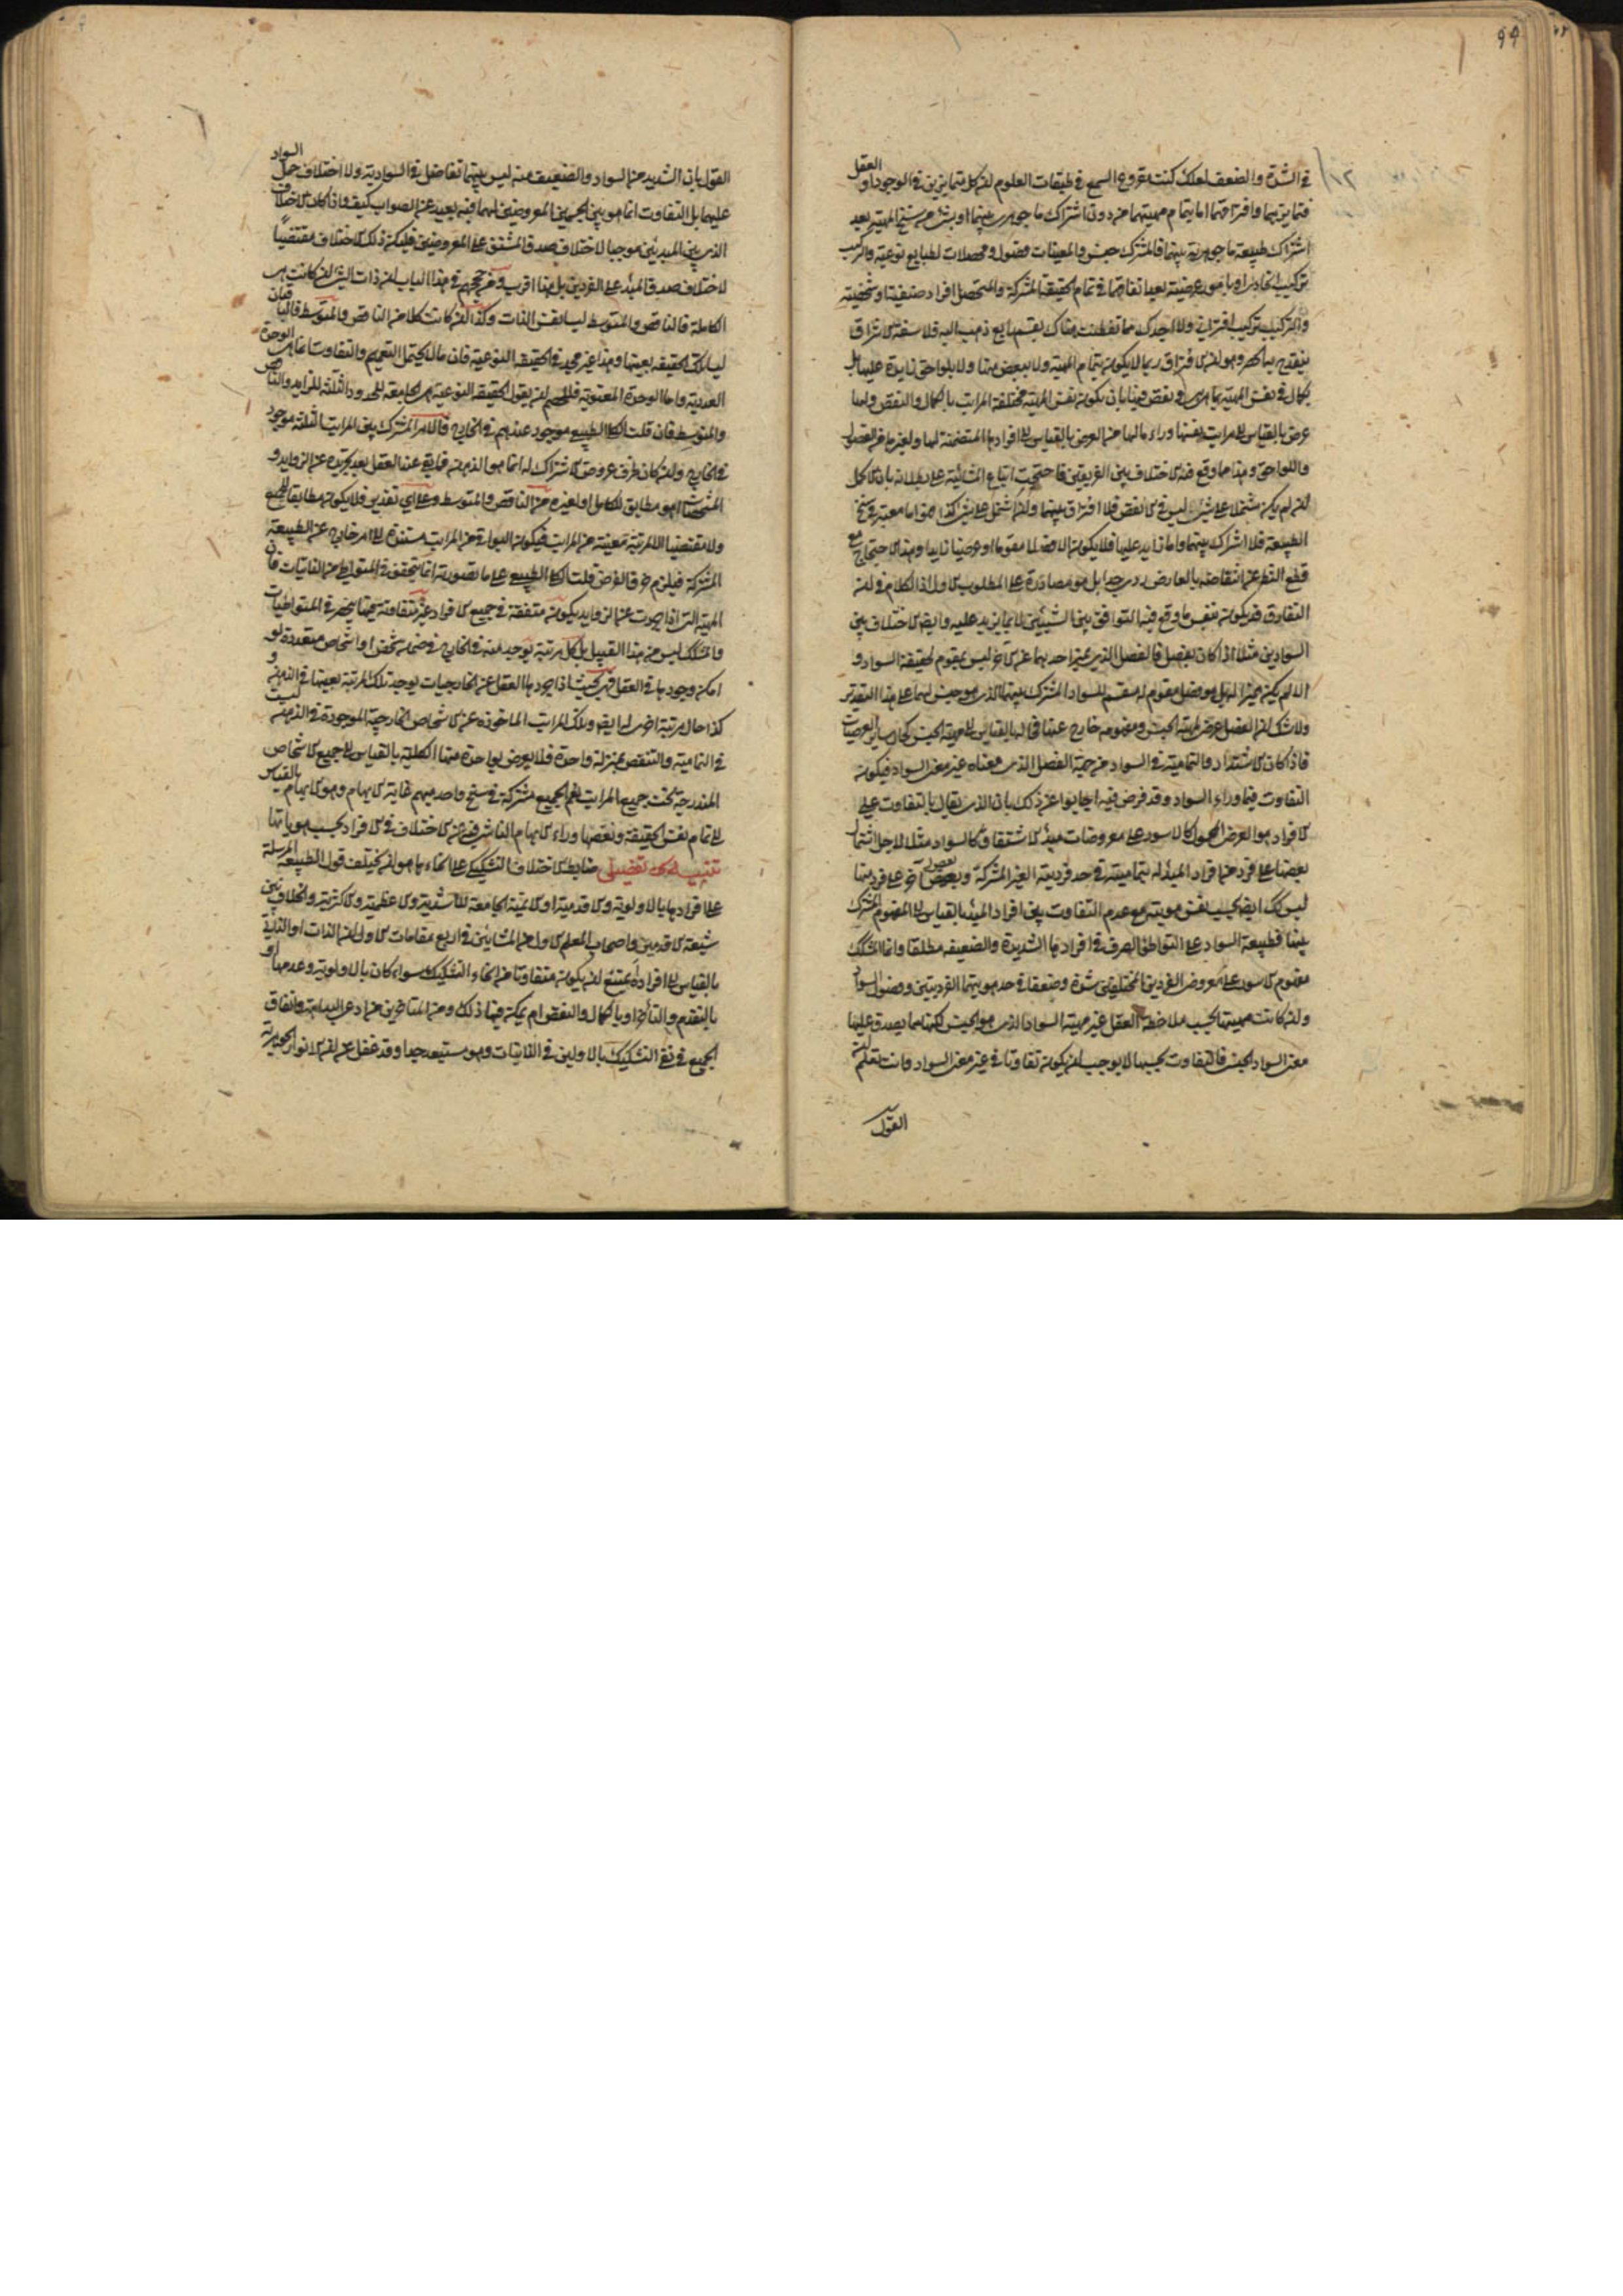 ٩٩
في الشدة والضعف لعلك كنت مقروع السمع في طبقات العلوم ان كل متمايزين في الوجود او العقل
فتمايزهما وافتراقهما اما بتمام مهيتهما من دون اشتراك ما جوهرى بينهما او بشىء من سنخ المهية بعد
اشتراك طبيعة ما جوهرية بينهما فالمشترك جنس والمعينات فصول ومحصلات لطبايع نوعية والتركيب
تركيب اتحادى او بامور عرضية بعد اتفاقهما في تمام الحقيقة المشتركة والمتحصل افراد صنفية او شخصية
والتركيب تركيب اقترانى ولا اجدك مما تفطنت هناك بقسم رابع ذهب اليه فلاسفة الاشراق
ينقدح به الحصر وهو ان الافتراق ربما لا يكون بتمام المهية ولا ببعض منها ولا بلواحق زايدة عليها بل
بكمال في نفس المهية بما هى هى ونقص فيها بان يكون نفس المهية مختلفة المراتب بالكمال والنقص ولها
عرض بالقياس الى مراتب نفسها وراء ما لها من العرض بالقياس الى افرادها المتضمنة لها ولغيرها من الفصول
واللواحق وهذا مما وقع فيه الاختلاف بين الفريقين فاحتجت اتباع المشائية على بطلانه بان الاكمل
ان لم يكن مشتملا على شىء ليس في الانقص فلا افتراق بينهما وان اشتمل على شىء كذا فهو اما معتبر في سنخ
الطبيعة فلا اشتراك بينهما واما زايد عليها فلا يكون الا فصلا مقوما او عرضيا زايدا وهذا الاحتجاج مع
قطع النظر عن انتقاضه بالعارض ردى جدا بل هو مصادرة على المطلوب الاول اذ الكلام في ان
التفارق قد يكون بنفس ما وقع فيه التوافق بين الشيئين لا بما يزيد عليه وايضا الاختلاف بين
السوادين مثلا اذا كان بفصل فالفصل الذى يميز احدهما عن الآخر ليس بمقوم لحقيقة السواد و
الا لم يكن مميزا له بل هو فصل مقوم له مقسم للسواد المشترك بينهما الذى هو جنس لهما على هذا التقدير
ولا شك ان الفصل عرض لمهية الجنس ومفهومه خارج عنها فحالها بالقياس الى مهية الجنس كحال ساير العرضيات
فاذا كان الاشتداد والتمامية في السواد من جهة الفصل الذى معناه غير معنى السواد فيكون
التفاوت فيما وراء السواد وقد فرض فيه اجابوا عن ذلك بان الذى يقال بالتفاوت على
الافراد هو العرض المحمول كالاسود على معروضات مبدء الاشتقاق كالسواد مثلا لاجل اشتمال
بعضها على فرد من افراد المبدء له تمامية في حد فرديته الغير المشتركة وبعض آخر على فرد منها
ليس كك ايضا بحسب نفس هويته مع عدم التفاوت بين افراد المبدء بالقياس الى المفهوم المشترك
بينها فطبيعة السواد على التواطى الصرف في افرادها الشديدة والضعيفة مطلقا وانما المشكك
مفهوم الاسود على معروض الفردين المختلفين شدة وضعفا في حد هويتهما الفرديتين وفصول السواد
وان كانت مهيتها بحسب ملاحظة العقل غير مهية السواد الذى هو الجنس لكنها مما يصدق عليها
معنى السواد الجنسى فالتفاوت بحسبها لا يوجب ان يكون تفاوتا في غير معنى السواد وانت تعلم ان
القول
القول بان الشديد من السواد والضعيف منه ليس بينهما تفاضل في السوادية ولا اختلاف حمل السواد
عليهما بل التفاوت انما هو بين الجسمين المعروضين لهما فيه بعيد عن الصواب كيف واذا كان الاختلاف
الذى بين المبدئين موجبا لاختلاف صدق المشتق على المعروضين فليكن ذلك الاختلاف مقتضيا
لاختلاف صدق المبدء على الفردين بل هذا اقرب ومن حججهم في هذا الباب ان ذات الشىء ان كانت هى
الكاملة فالناقص والمتوسط ليسا نفس الذات وكذا ان كانت كلا من الناقص والمتوسط فالباقيان
ليسا تلك الحقيقة بعينها وهذا غير مجد في الحقيقة النوعية فان ما لا يحتمل التعميم والتفاوت انما هى الوحدة
العددية واما الوحدة المعنوية فللخصم ان يقول الحقيقة النوعية هى الجامعة للحدود الثلثة الزايد والناقص
والمتوسط فان قلت الكلى الطبيعى موجود عندهم في الخارج فالامر المشترك بين المراتب الثلثة موجود
في الخارج وان كان ظرف عروض الاشتراك له انما هو الذهن فما بقى عند العقل بعد تجريده عن الزوايد و
المشخصات اهو مطابق للكامل او لغيره من الناقص والمتوسط وعلى اى تقدير فلا يكون مطابقا للجميع
ولا مقتضيا الا لمرتبة معينة من المراتب فيكون البواقى من المراتب مستندة الى امر خارج عن الطبيعة
المشتركة فيلزم خرق الفرض قلت الكلى الطبيعى على ما تصورته انما يتحقق في المتواطى من الذاتيات فان
المهية التى اذا جردت عن الزوايد يكون متفقة في جميع الافراد غير متفاوتة فيها ينحصر في المتواطيات
والمشكك ليس من هذا القبيل بل كل مرتبة توجد منه في الخارج في ضمن شخص او اشخاص متعددة لو
امكن وجودها في العقل فهى بحيث اذا جردها العقل عن الخارجيات يوجد تلك المرتبة بعينها في الذهن و
كذا حال مرتبة اخرى له ايضا وتلك المراتب الماخوذة عن الاشخاص الخارجية الموجودة في الذهن ليست
في التمامية والتنقص بمنزلة واحدة فلا يعرض لواحدة منها الكلية بالقياس الى جميع الاشخاص
المندرجة تحت جميع المراتب نعم الجميع مشتركة في سنخ واحد مبهم غاية الابهام وهو الابهام بالقياس
الى تمام نفس الحقيقة ونقصها وراء الابهام الناشى فيه عن الاختلاف في الافراد بحسب هوياتها
تنبيه تفصيلى ضابط الاختلاف التشكيكى على انحائه هو ان يختلف قول الطبيعة المرسلة
على افرادها بالاولوية والاقدمية او الاتمية الجامعة للاشدية والاعظمية والاكثرية والخلاف بين
شيعة الاقدمين واصحاب المعلم الاول من المشائين في اربع مقامات الاول ان الذات او الذاتى
بالقياس الى افراده أيمتنع ان يكون متفاوتا من انحاء التشكيك سواء كان بالاولوية وعدمها او
بالتقدم والتأخر او بالكمال والنقص ام يمكن فيها ذلك ومن المتاخرين من ادعى البداهة واتفاق
الجميع في نفى التشكيك بالاولين في الذاتيات وهو مستبعد جدا وقد غفل عن ان الانوار الجوهرية